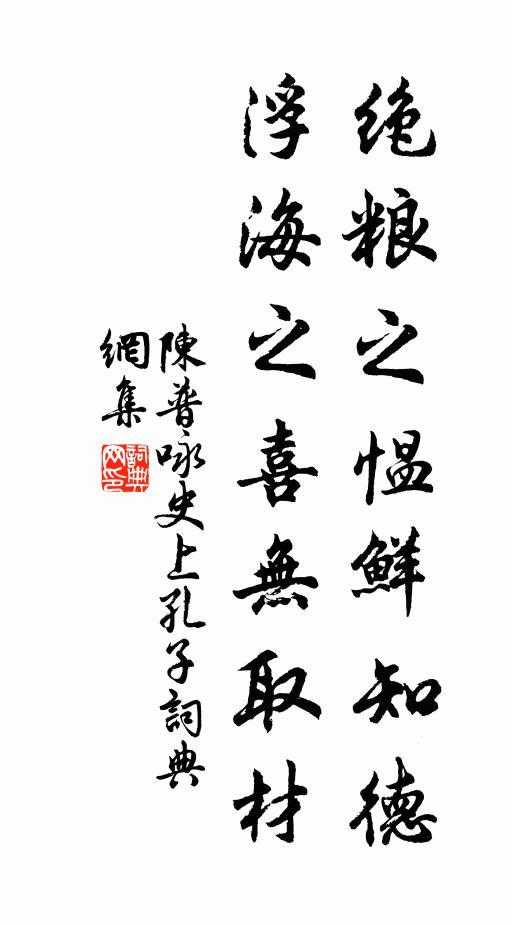 绝粮之愠鲜知德
浮海之喜無取材
陳普咏史上孔子詞典
網集
詞典網印